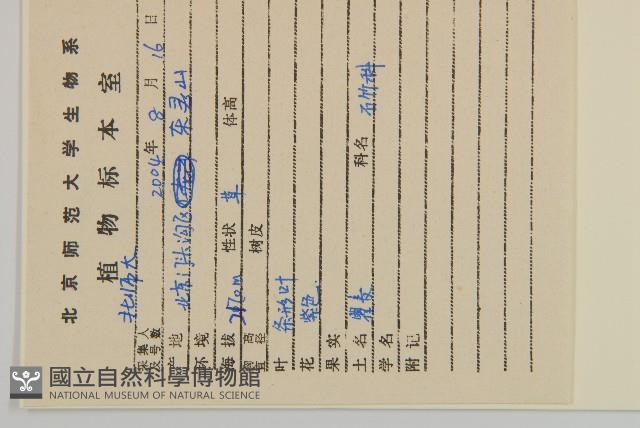 北京师范大学生物系
植物标本室
采集人及号数 北师大 2004年8月16日
产地 北京门头沟区 东灵山
环境
海拔 m 性状 草 体高
胸高直径 树皮
叶 条形叶
花 紫色
果实
土名 瞿麦 科名 石竹科
学名
附记
國立自然科學博物館
NATIONAL MUSEUM OF NATURAL SCIENCE